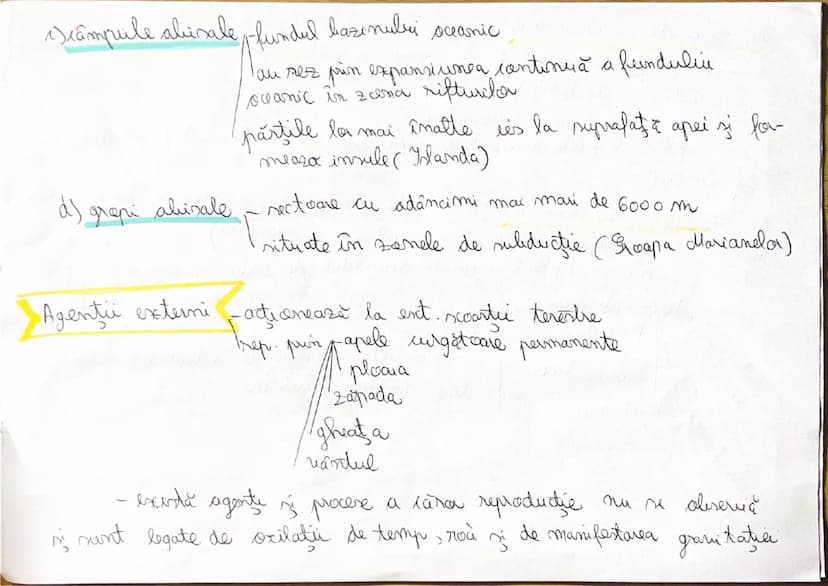 c) câmpule abisale - fundul bazinului oceanic
au rez prin expansiunea continuă a fundului
oceanic în zona rifturilor
părțile lor mai înalte ies la suprafața apei și for-
mează insule (Islanda)
d) gropi abisale - sectoare cu adâncimi mai mari de 6000 m
situate în zonele de subducție (Groapa Marianelor)
Agenții externi - acționează la ext. scoarței terestre
rep. prin - apele curgătoare permanente
ploaia
zăpada
gheața
vântul
- există agenți și procese a căror reproducție nu se observă
și sunt legate de oxilații de temp, roă și de manifestarea gravitației